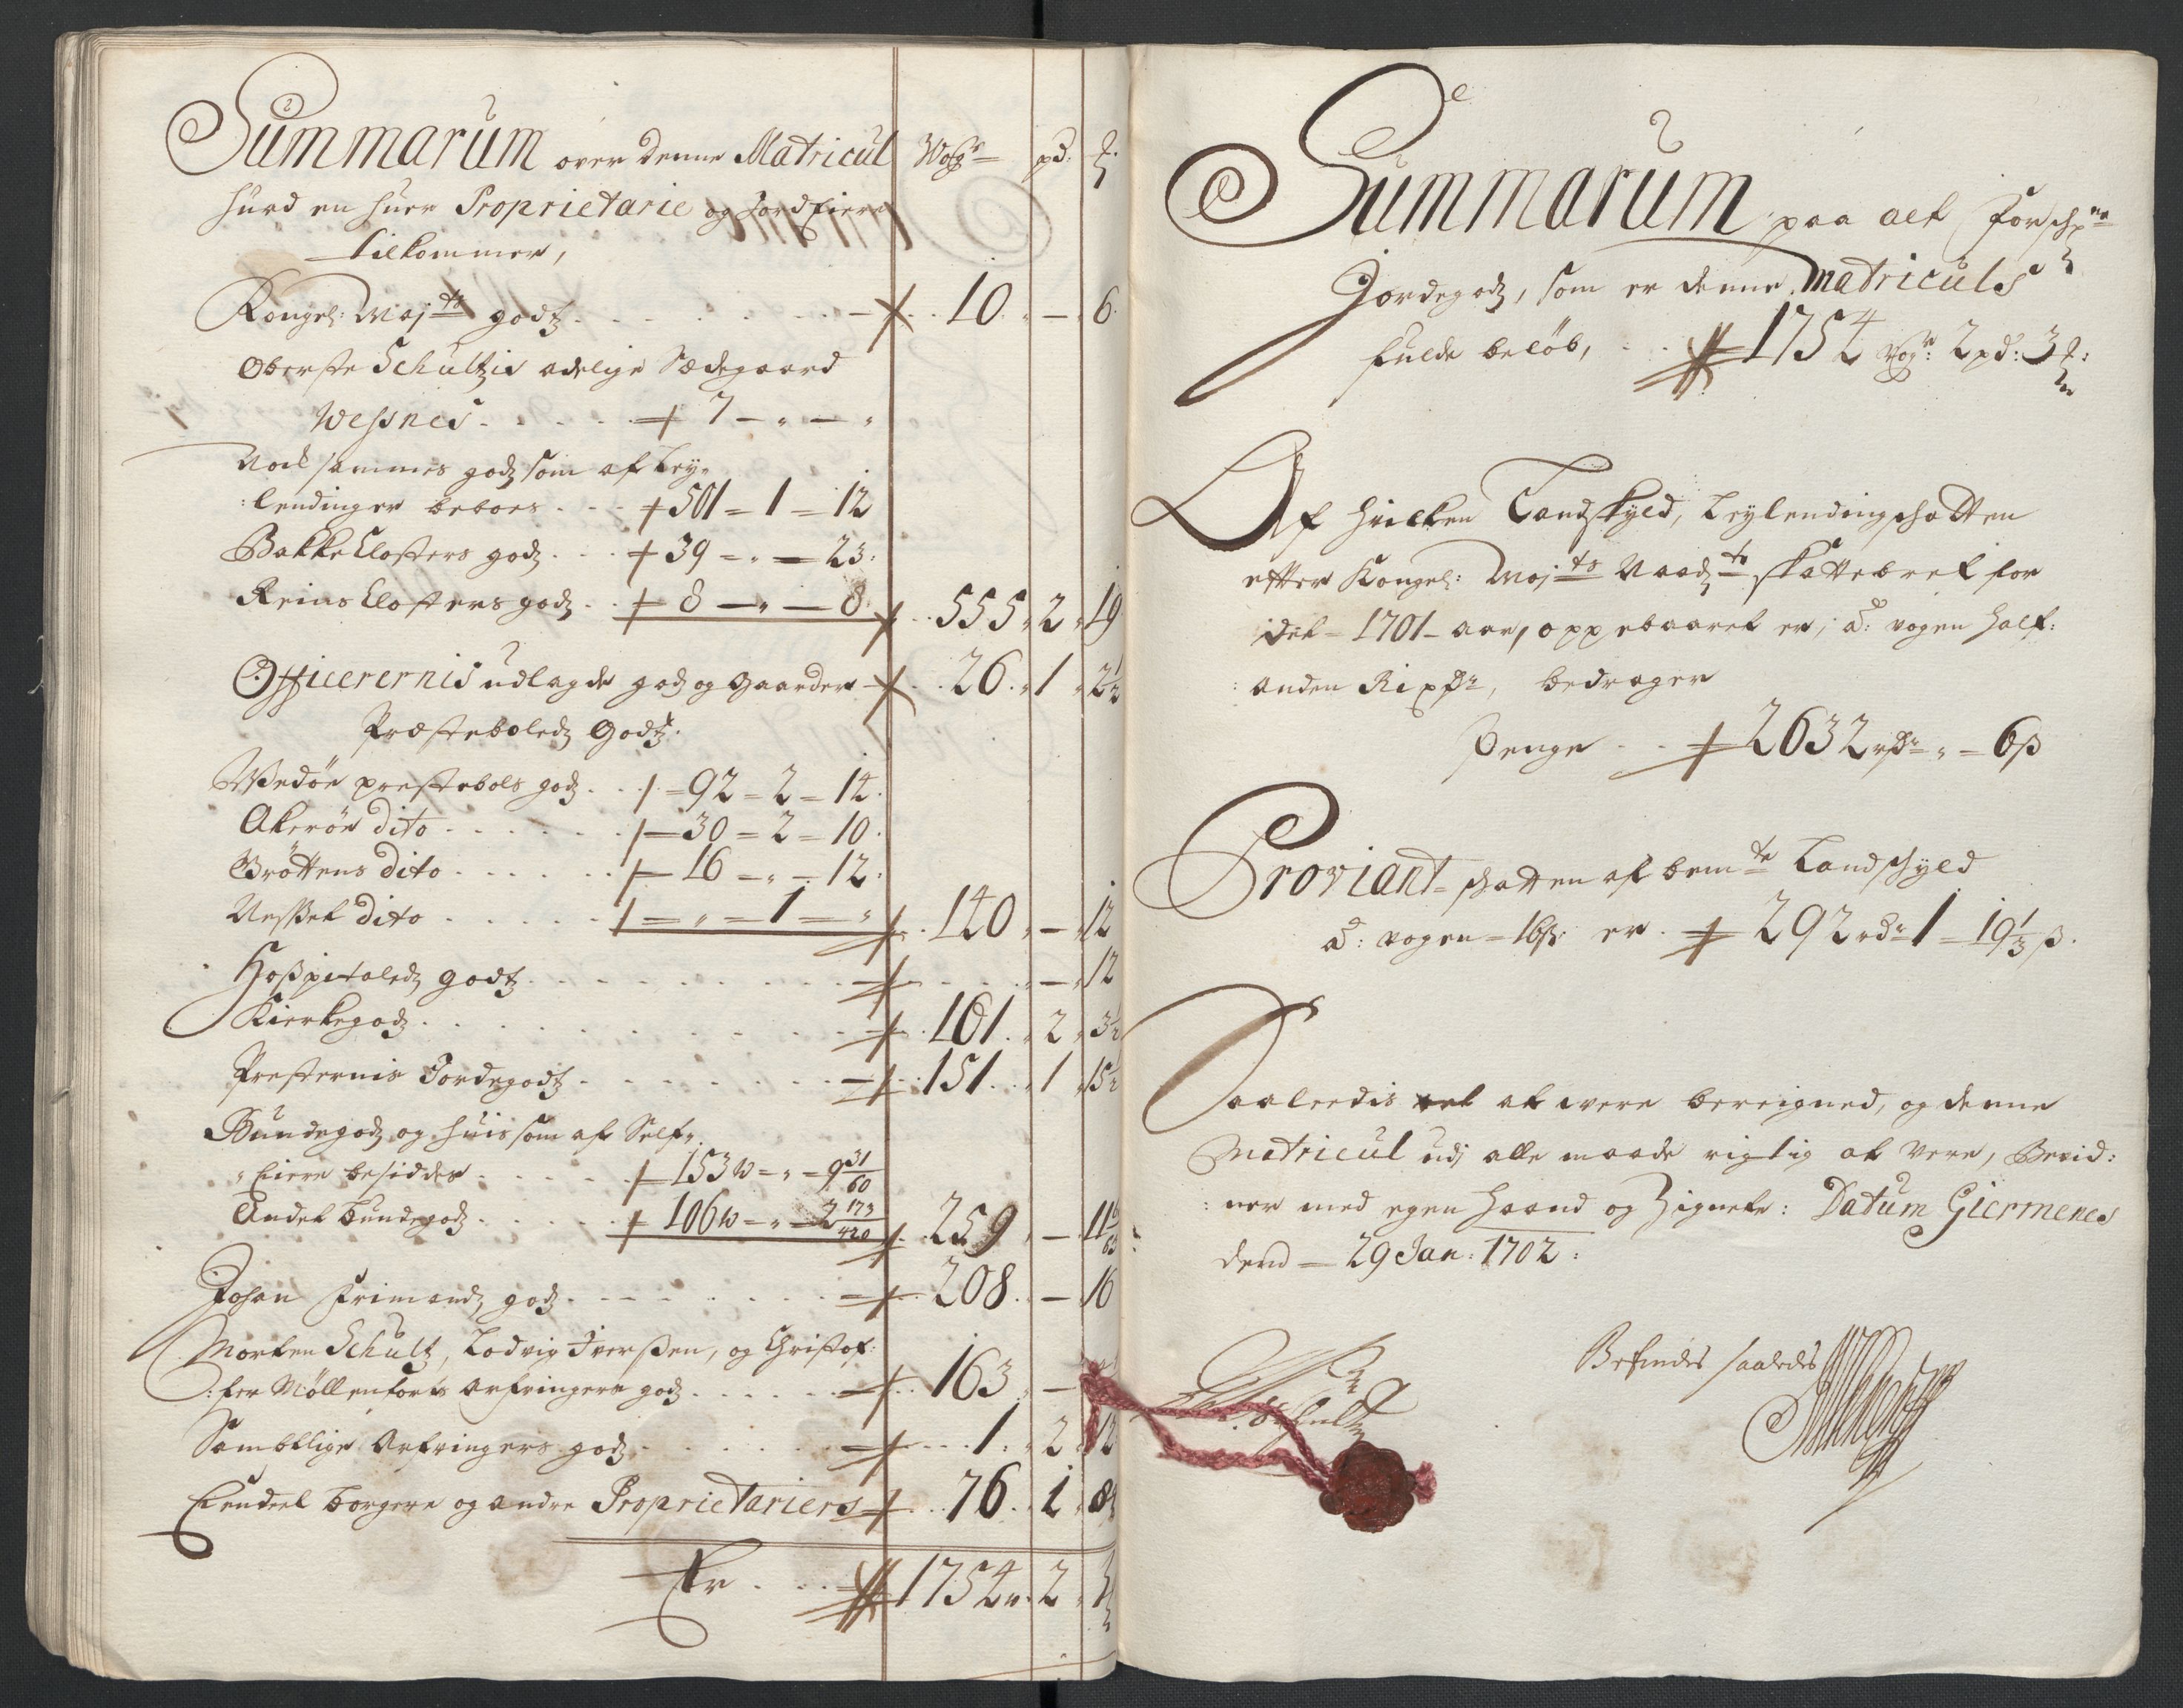 Summarum over denne Matricul Wogr pd:
huad en huer Proprietarie og Jordeiere
tilkommer,
Kongel: Maj:ts godtz 10 – 6
Oberste Schultzis adelige Sædegaard
Wessnes 7 – " – "
Noch sammes godz som af Ley-
:lendinger beboes 501 = 1 = 12
Bakke Closters godz 39 = " = 23
Reins Closters godz 8 – " – 8 555 2 19
Officerernis udlagde godz og Gaarder 26 1 2½
Præsteboledz Godtz
Wedøe prestebols godz 92 = 2 = 14
Akerøe dito 30 = 2 = 10
Grøttens dito 16 – " – 12
Nesset dito " = 1 = " 140 – 12
Hospitaledz godtz – 12
Kierkegodz 161 2 3½
Presternis Jordegodtz 151 1 15½
Bundegodz og huis som af Self-
"Eiere besidder 153 w = " = 9 31/60
Andet bundegodz 106 w = " = 2 173/420 259 – 11
Johan Frimandz godz 208 – 16
Morten Schultz, Lodvig Iversen, og Christof:
:fer Møllenforts arfvingers godz 163 –
Samtlige Arfvingers godz 1 2 12
Eendeel borgere og andre Proprietariers 76 1 8
Er 1754 2
Summarum paa alt Forschr:ne
Jordegodz, som er denne matriculs
fulde beløb, 1754 wogr: 2 pd: 3
Af huilken Landskyld, Leylendingschatten
efter Kongel: Maj:ts Naadz:te skattebref for
idet – 1701 – aar, oppebaaret er, a: vogen half:
:anden Rixdr, bedrager
Penge 2632 rdr " – 6 ß
Proviant– schatten af bem:te Landschyld
a: vogen – 16 ß er 292 rdr 1 – 19⅓ ß.
Saaleedis at were bereigned, og denne
Matricul udj alle maade rigtig at vere, Bevid:
:ner med egen haand og Zignete: Datum Giermenes
dend – 29 Jan: 1702:
Befindes saaledes